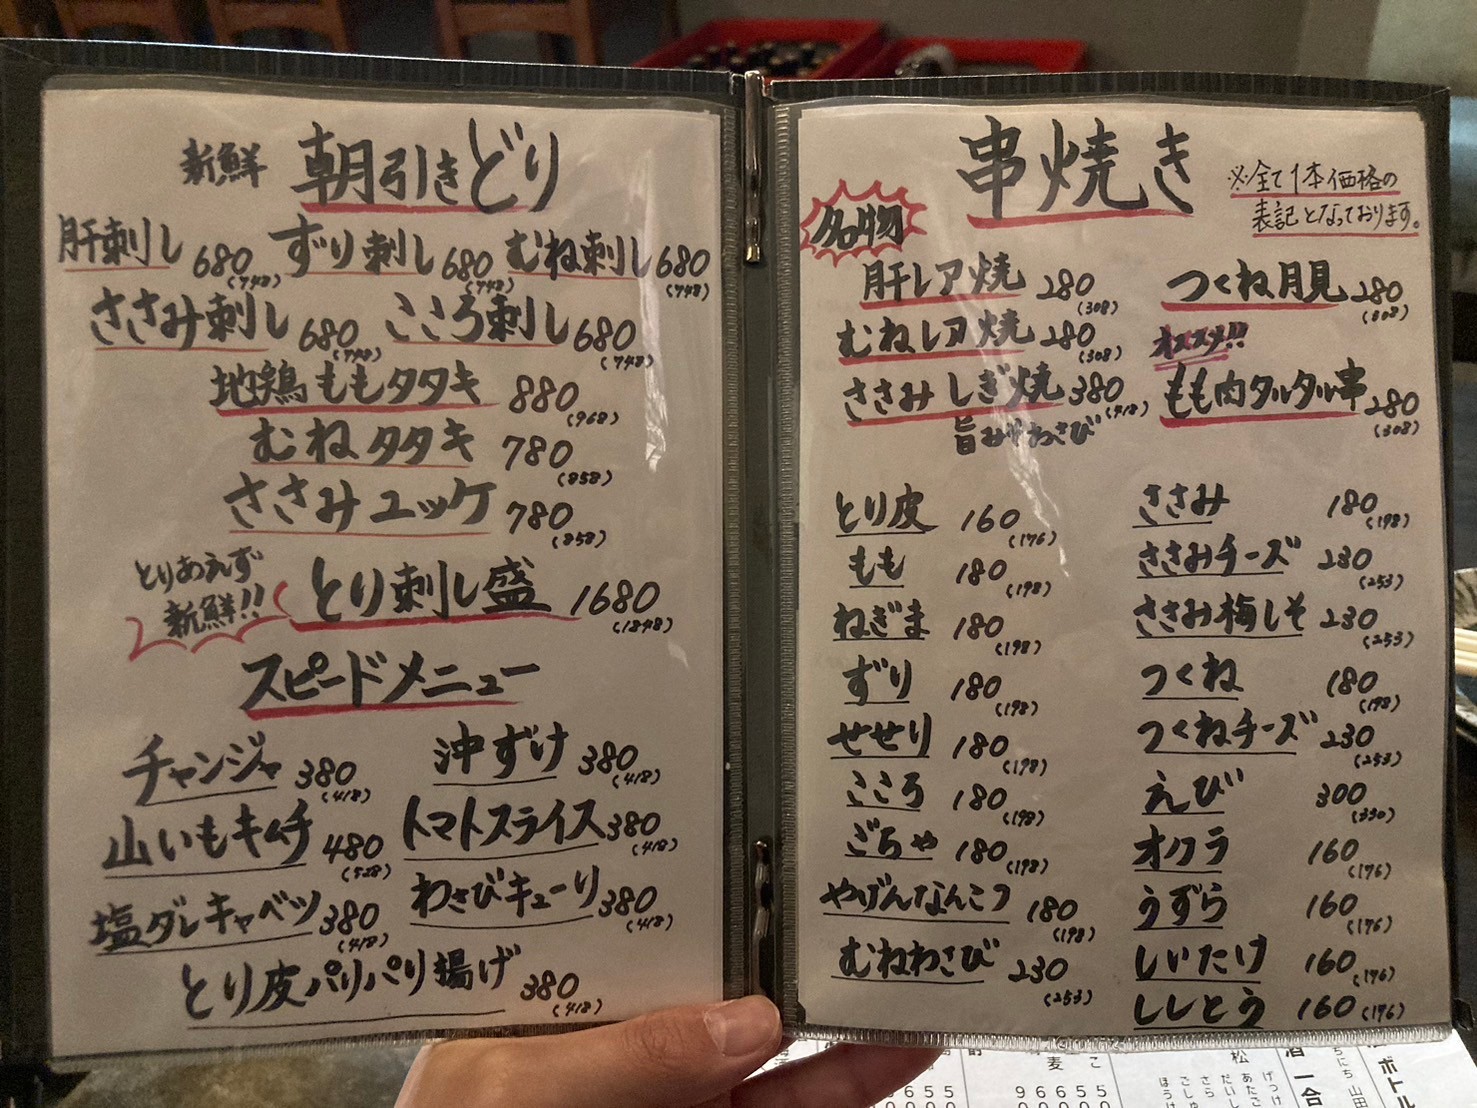 新鮮 朝引きどり
肝刺し 680 (748) ずり刺し 680 (748) むね刺し 680 (748)
ささみ刺し 680 (748) こころ刺し 680 (748)
地鶏ももタタキ 880 (968)
むねタタキ 780 (858)
ささみユッケ 780 (858)
とりあえず
新鮮!!
とり刺し盛 1680 (1848)
スピードメニュー
チャンジャ 380 (418) 沖ずけ 380 (418)
山いもキムチ 480 (528) トマトスライス 380 (418)
塩ダレキャベツ 380 (418) わさびキューリ 380 (418)
とり皮パリパリ揚げ 380 (418)
串焼き
※全て1本価格の
表記となっております。
名物
肝レア焼 280 (308)
むねレア焼 280 (308)
ささみしぎ焼 380 (418)
旨みやわさび
つくね月見 280 (308)
オススメ!!
もも肉タルタル串 280 (308)
とり皮 160 (176)
もも 180 (198)
ねぎま 180 (198)
ずり 180 (198)
せせり 180 (198)
こころ 180 (198)
ごちゃ 180 (198)
やげんなんこつ 180 (198)
むねわさび 230 (253)
ささみ 180 (198)
ささみチーズ 230 (253)
ささみ梅しそ 230 (253)
つくね 180 (198)
つくねチーズ 230 (253)
えび 300 (330)
オクラ 160 (176)
うずら 160 (176)
しいたけ 160 (176)
ししとう 160 (176)